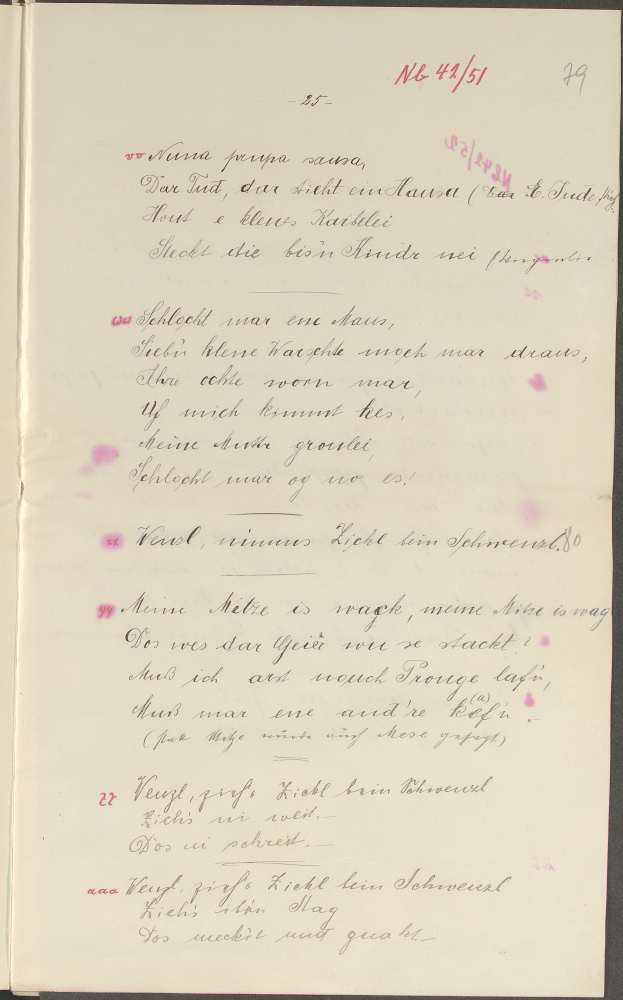 Nb 42/51
79
- 25 -
vv Nuna prupa sausa,
Dar Tud, dar sieht ein Hausa ( E. Jude
Hout e klenes Karbelei
Steckt die bis'n Kindr nei
ww Schlocht mar ene Maus,
Sieb'n klene Warschte moch mar draus,
Ihre ochte worn mar,
Uf mich kimmt kes.
Meine Muttr groulei,
Schlocht mar og no es!
xx Wensl, nimms Zickl beim Schwenzl. 80
yy Meine Metze is wagk, meine Mitze is wag
Dos wes dar Geier wu se stackt!
Muß ich arst nouch Prouge lafn,
Muß mar ene and're kef'n (a).
(statt Metze wurde auch Mese gesagt)
zz Wenzl, zieh's Zickl beim Schwenzl
Zieh's ni weit.-
Dos ni schreit.-
aaa Wenzl, zieh's Zickl beim Schwenzl
Zieh's ibrn Stag
Dos meckst und quakt-